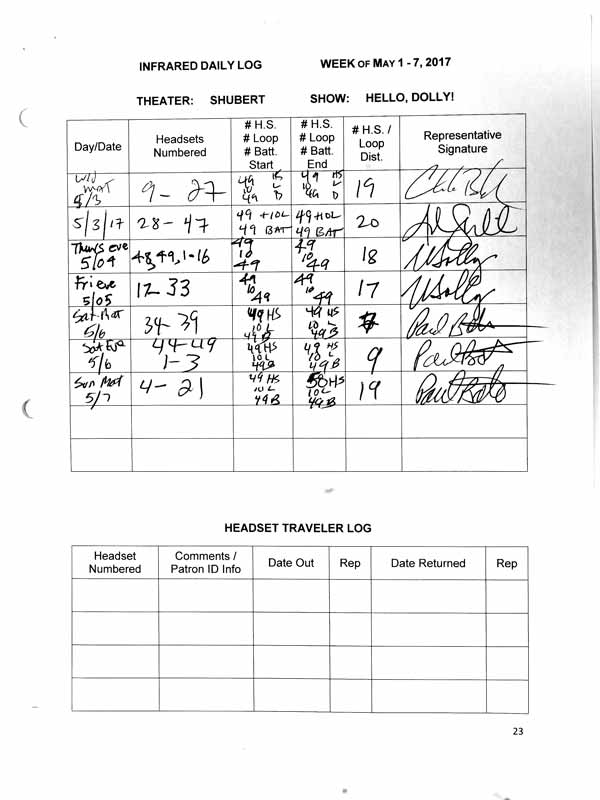 INFRARED DAILY LOG WEEK OF MAY 1 - 7, 2017
THEATER: SHUBERT SHOW: HELLO, DOLLY!
Day/Date Headsets Numbered # H.S. # Loop # Batt. Start # H.S. # Loop # Batt. End # H.S. / Loop Dist. Representative Signature
Wed MAT 5/3 9 - 27 49 HS 10 L 49 B 49 HS 10 L 49 B 19
5/3/17 28 - 47 49 +10L 49 BAT 49 +10L 49 BAT 20
Thurs eve 5/04 48,49,1-16 49 10 49 49 10 49 18
Fri eve 5/05 12-33 49 10 49 49 10 49 17
Sat Mat 5/6 34 - 39 49 HS 10 L 49 B 49 HS 10 L 49 B Paul
Sat Eve 5/6 44-49 1-3 49 HS 10 L 49 B 49 HS 10 L 49 B 9 Paul
Sun Mat 5/7 4 - 21 49 HS 10 L 49 B 50 HS 10 L 49 B 19 Paul
HEADSET TRAVELER LOG
Headset Numbered Comments / Patron ID Info Date Out Rep Date Returned Rep
23